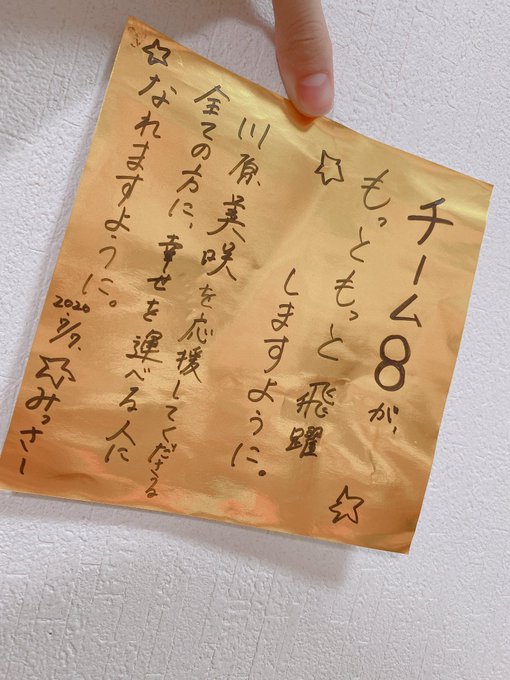 チーム8が、
もっともっと飛躍
しますように。
川原美咲を応援してくださる
全ての方に、幸せを運べる人に
なれますように。
2020.7/7.
みっさー